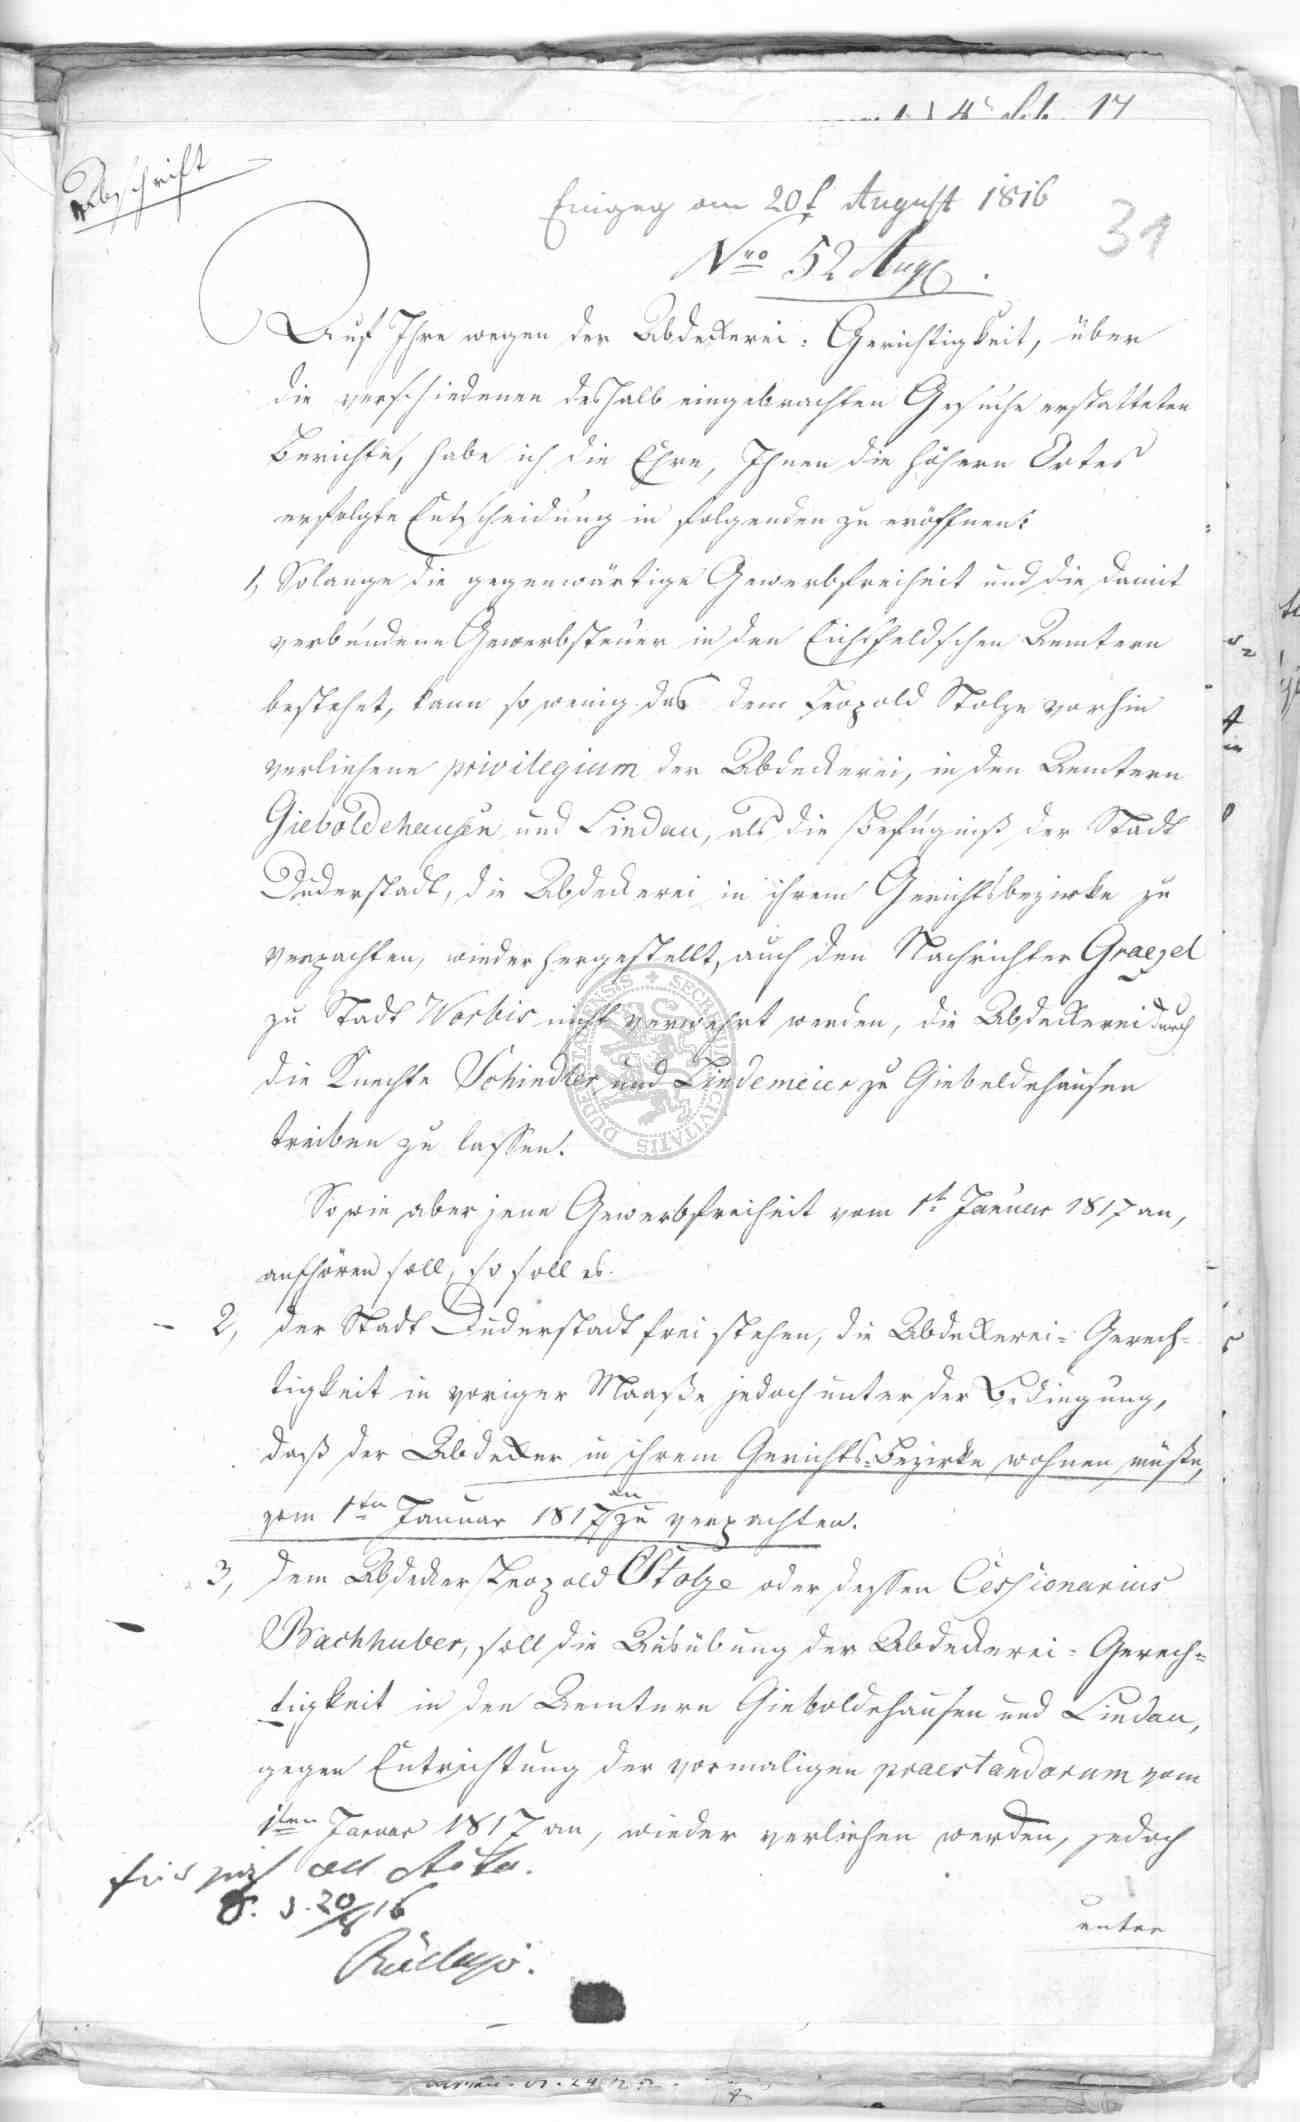 Abschrift
Eingeg am 20t August 1816
31
Nro 52 Aug.
Auf Ihre wegen der Abdekerei-Gerichtigkeit, über
die verschiedenen deshalb eingebrachten Gesuche erstatteten
Berichte, habe ich die Ehre, Ihnen die höhern Ortes
erfolgte Entscheidung in folgenden zu eröffnen:
1, Solange die gegenwärtige Gewerbfreiheit und die damit
verbundene Gewerbsteuer in den Eichsfeldschen Aemtern
bestehet, kann so wenig das dem Leopold Stolze vorhin
verliehene privilegium der Abdeckerei, in den Aemtern
Gieboldehausen und Lindau, als die Befugniß der Stadt
Duderstadt, die Abdeckerei in ihrem Gerichtsbezirke zu
verpachten, wieder hergestellt, auch den Nachrichter Graezel
zu Stadt Worbis nicht verwehrt werden, die Abdekerei durch
die Knechte Schindler und Lindemeier zu Giebeldehausen
treiben zu lassen.
Sowie aber jene Gewerbfreiheit vom 1t Januar 1817 an,
aufhören soll, so soll es
2, der Stadt Duderstadt frei stehen, die Abdekerei-Gerech-
tigkeit in voriger Maaße jedoch unter der Bedingung,
daß der Abdeker in ihrem Gerichts-Bezirke wohnen müßte,
vom 1ten Januar 1817 an zu verpachten.
3, dem Abdecker Leopold Stolze oder dessen Cessionarius
Bachhuber, soll die Ausübung der Abdeckerei-Gerech-
tigkeit in den Aemtern Gieboldehausen und Lindau,
gegen Entrichtung der vormaligen praestandorum vom
1ten Januar 1817 an, wieder verliehen werden, jedoch
ad Acta.
20/8 16
unter